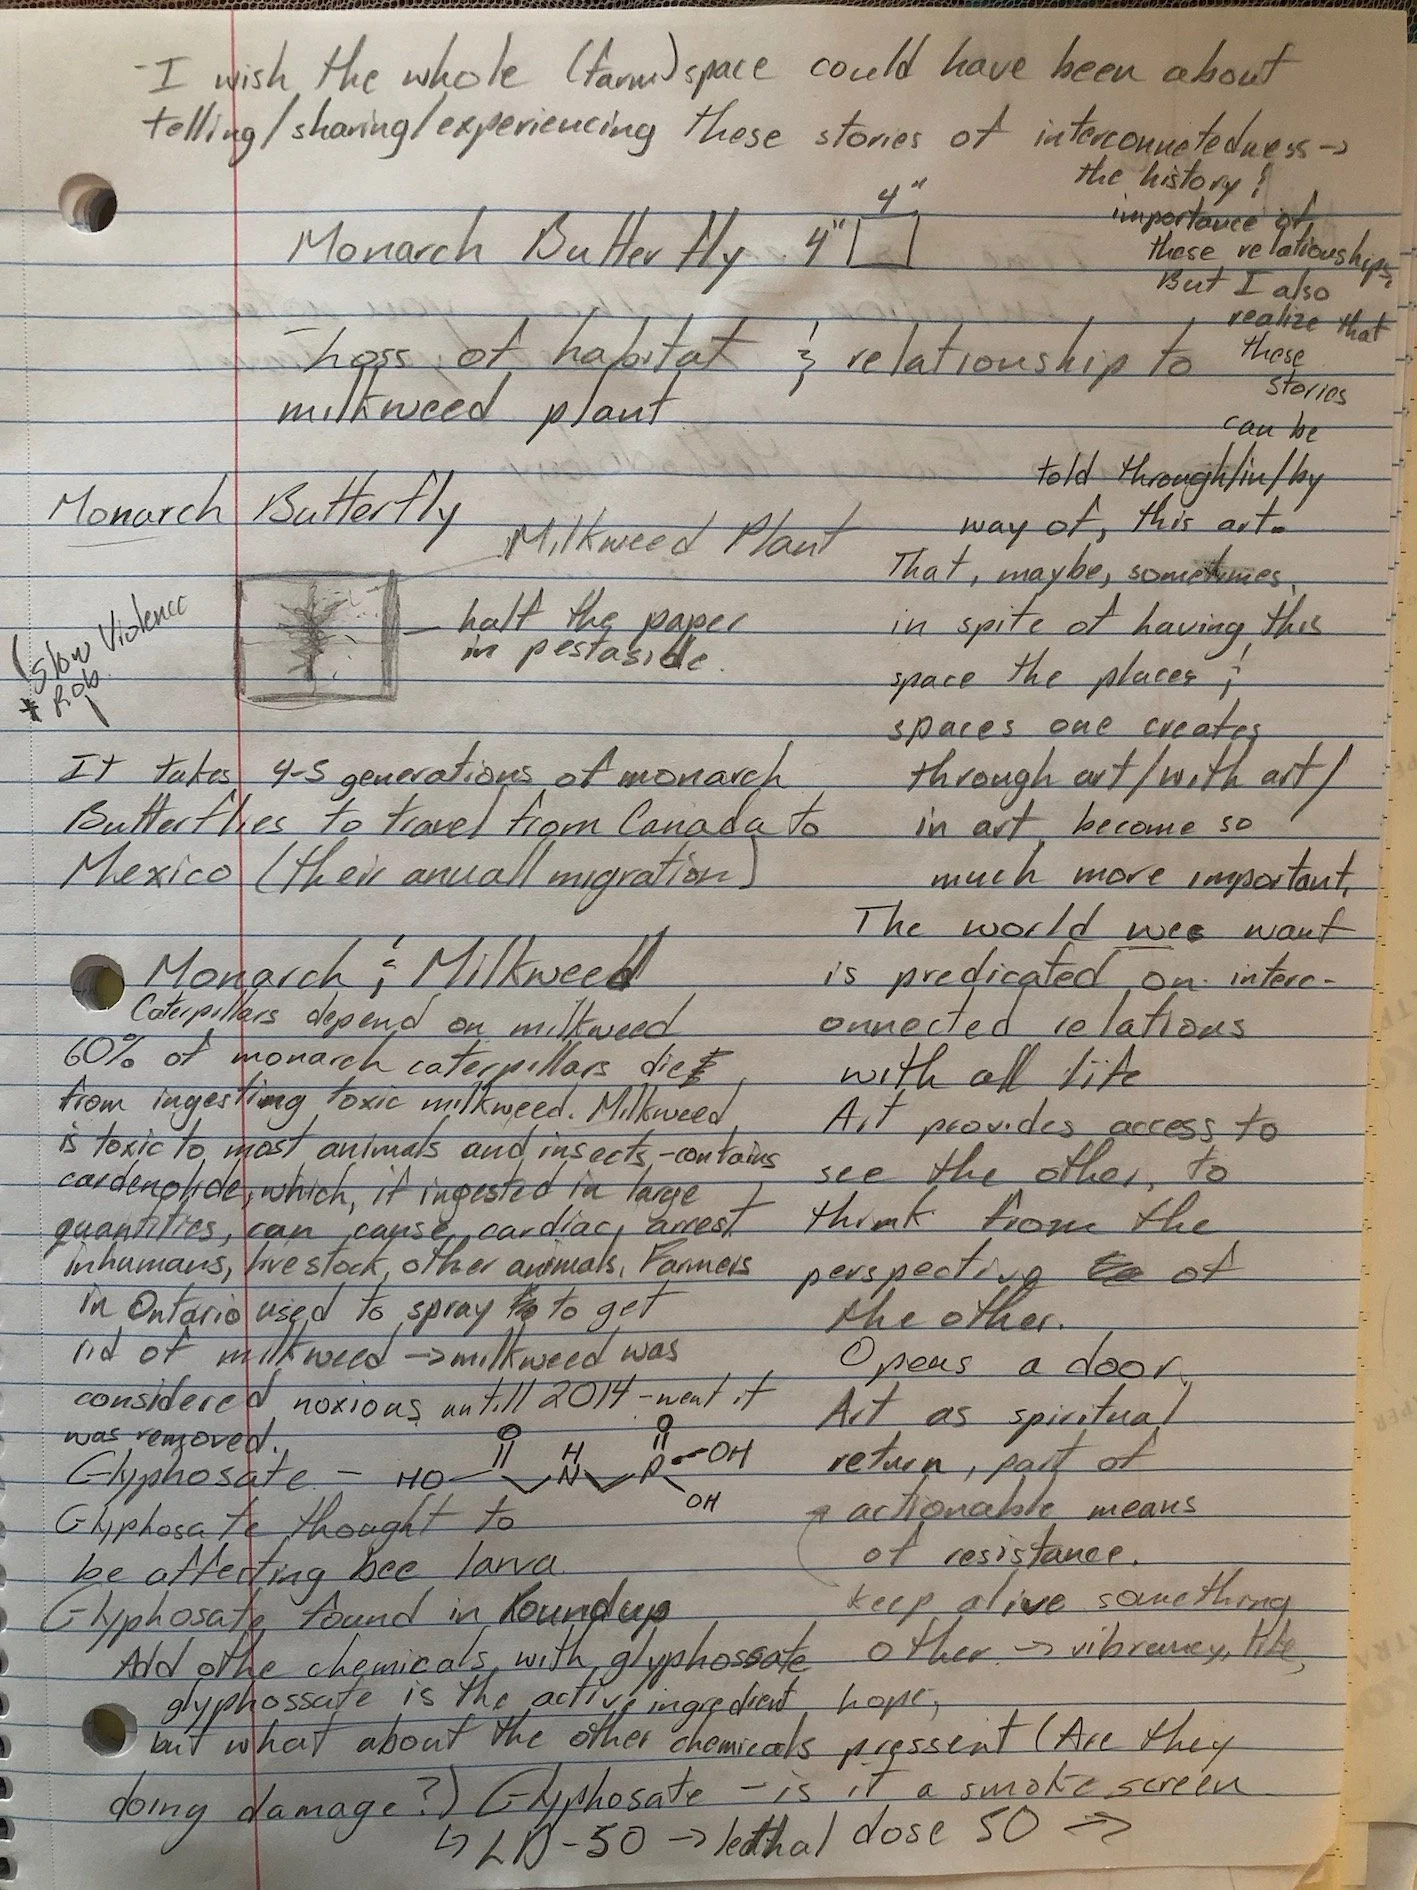 -I wish the whole (farm) space could have been about
telling/sharing/experiencing these stories of interconnetedness →
the history &
importance of
these relationships.
But I also
realize that
these
stories
can be
told through/in/by
way of, this art.
That, maybe, sometimes,
in spite of having this
space the places &
spaces one creates
through art/with art/
in art become so
much more important.
The world we want
is predicated on interc-
onnected relations
with all life
Art provides access to
see the other, to
think from the
perspective of
the other.
Opens a door.
Art as spiritual
return, part of
actionable means
of resistance.
keep alive something
other → vibrancy, life,
hope,
4"
Monarch Butterfly 4"
- Loss of habitat & relationship to
milkweed plant
Monarch Butterfly
Milkweed Plant
half the paper
in pestaside.
(Slow Violence
* Rob
It takes 4-5 generations of monarch
Butterflies to travel from Canada to
Mexico (their anuall migration)
Monarch & Milkweed
Caterpillars depend on milkweed
60% of monarch caterpillars die
from ingesting toxic milkweed. Milkweed
is toxic to most animals and insects -contains
cardenolide, which, if ingested in large
quantities, can cause cardiac arrest
in humans, livestock, other animals. Farmers
in Ontario used to spray to get
rid of milkweed → milkweed was
considered noxious untill 2014 - went it
was removed.
Glyphosate - HO O H N O P OH OH
Glyphosate thought to
be affecting bee larva
Glyphosate found in Roundup
Add othe chemicals with glyphossate
glyphossate is the active ingredient
but what about the other chemicals pressent (Are they
doing damage?) Glyphosate - is it a smoke screen
↳ LD-50 → lethal dose 50 →